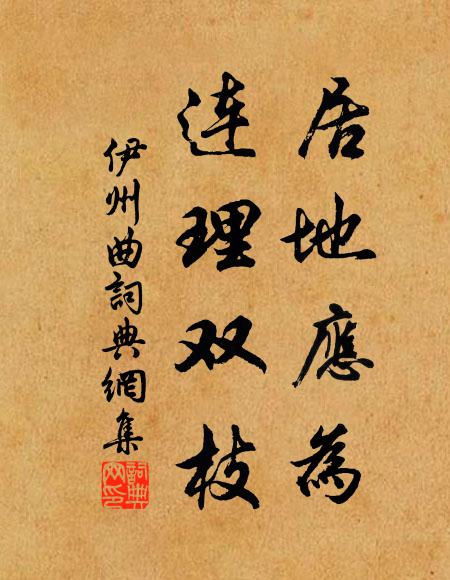 居地應為
连理双枝
伊州曲詞典網集
詞典
网印